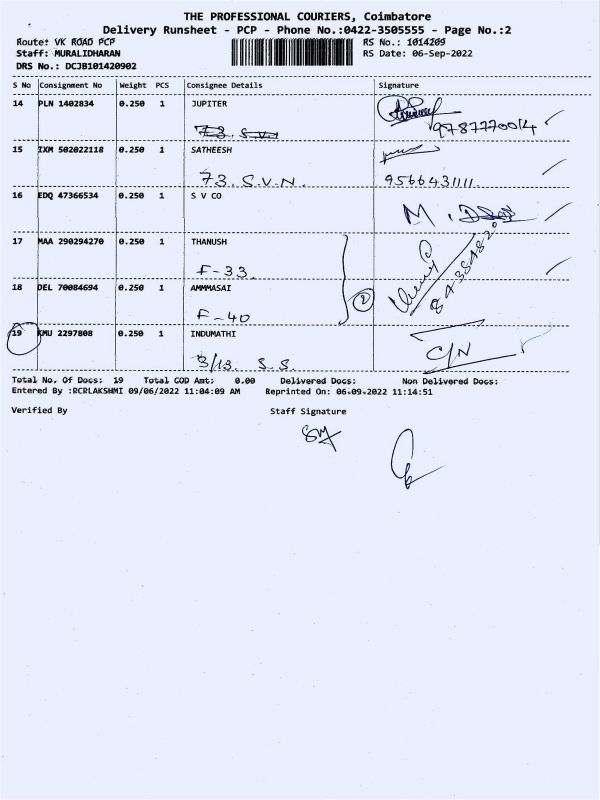 THE PROFESSIONAL COURIERS, Coimbatore
Delivery Runsheet - PCP - Phone No.:0422-3505555 - Page No.:2
Route: VK ROAD PCP RS No.: 1014209
Staff: MURALIDHARAN RS Date: 06-Sep-2022
DRS No.: DCJB101420902
S No Consignment No Weight PCS Consignee Details Signature
14 PLN 1402834 0.250 1 JUPITER
73. S.V.N
9787770014
15 IXM 502022118 0.250 1 SATHEESH
73. S.V.N. 9566431111.
16 EDQ 47366534 0.250 1 S V CO
M.
17 MAA 290294270 0.250 1 THANUSH
F-33.
18 DEL 70084694 0.250 1 AMMMASAI
F-40
2
19 KMU 2297808 0.250 1 INDUMATHI
3/13. S.S. C/N
Total No. Of Docs: 19 Total COD Amt: 0.00 Delivered Docs: Non Delivered Docs:
Entered By :PCRLAKSHMI 09/06/2022 11:04:09 AM Reprinted On: 06-09-2022 11:14:51
Verified By Staff Signature